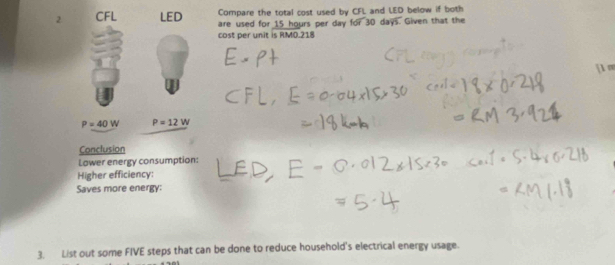 2. CFL LED Compare the total cost used by CFL and LED below if both
are used for 15 hours per day for 30 days. Given that the
cost per unit is RM0.218
E = Pt
CFL, E = 0.04x15x30 cost = 18 x 0.218
= 18 kWh = RM 3.924
P = 40 W P = 12 W
Conclusion
Lower energy consumption:
Higher efficiency:
Saves more energy:
LED, E = 0.012x15x30 cost = 5.4x0.218
= 5.4 = RM1.18
3. List out some FIVE steps that can be done to reduce household's electrical energy usage.